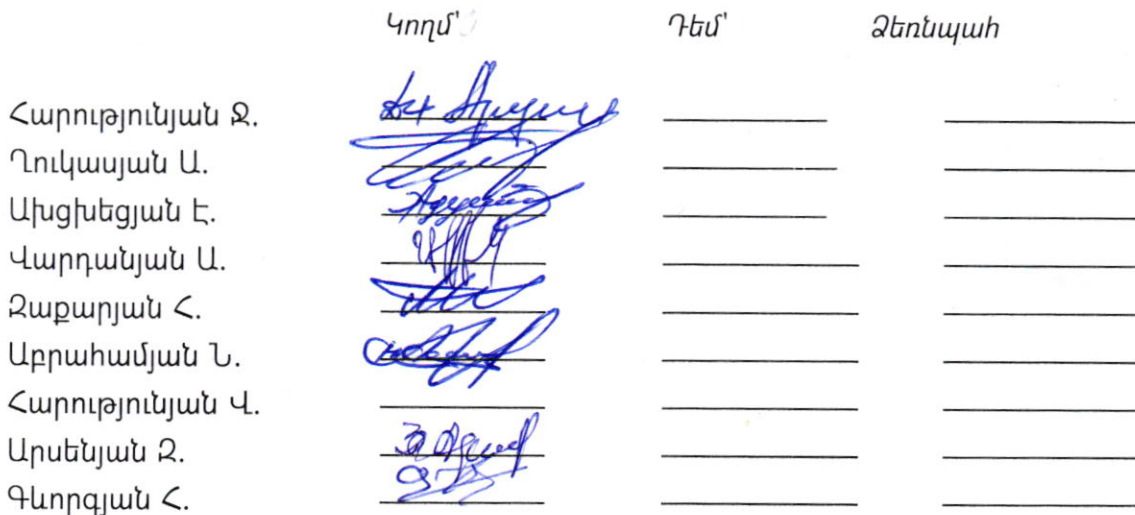 Կողմ՝ Դեմ՝ Ձեռնպահ
Հարությունյան Ջ.
Ղուկասյան Ա.
Ախցխեցյան Է.
Վարդանյան Ա.
Զաքարյան Հ.
Աբրահամյան Ն.
Հարությունյան Վ.
Արսենյան Զ.
Գևորգյան Հ.